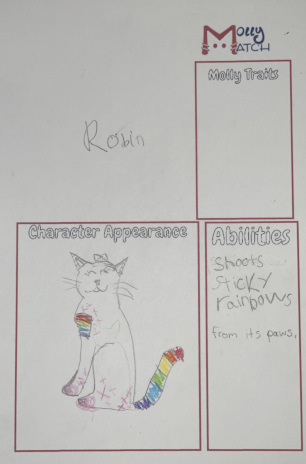 Molly
Match
Molly Traits
Robin
Character Appearance
Abilities
Shoots
Sticky
rainbows
from its paws.